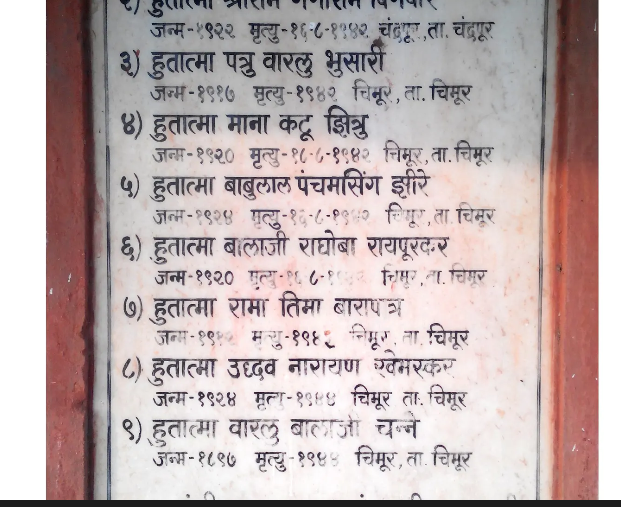 २) हुतात्मा श्रीराम
जन्म-१९२२ मृत्यु-१६-८-१९४२ चंद्रपूर, ता. चंद्रपूर
३) हुतात्मा पत्रु वारलु भुसारी
जन्म-१९१७ मृत्यु-१९४२ चिमूर, ता. चिमूर
४) हुतात्मा माना कटू झित्रु
जन्म-१९२० मृत्यु-१८-८-१९४२ चिमूर, ता. चिमूर
५) हुतात्मा बाबुलाल पंचमसिंग झीरे
जन्म-१९२४ मृत्यु-१६-८-१९४२ चिमूर, ता. चिमूर
६) हुतात्मा बालाजी राघोबा रायपूरकर
जन्म-१९२० मृत्यु- चिमूर, ता. चिमूर
७) हुतात्मा रामा तिमा बारापत्रे
जन्म- मृत्यु-१९४२ चिमूर, ता. चिमूर
८) हुतात्मा उध्दव नारायण खेमस्कर
जन्म-१९२४ मृत्यु-१९४४ चिमूर ता. चिमूर
९) हुतात्मा वारलु बालाजी चन्ने
जन्म-१८९७ मृत्यु-१९४४ चिमूर, ता. चिमूर